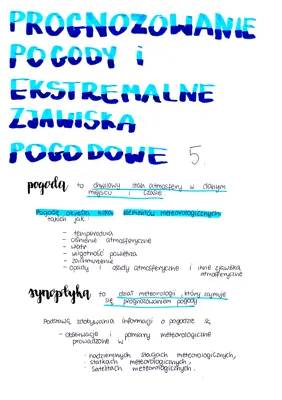 PROGNOZOWANIE
POGODY i
EKSTREMALNE
ZJAWISKA
POGODOWE 5.
pogoda to chwilowy stan atmosfery w danym
miejscu i czasie
Pogodę określa kilka elementów meteorologicznych
takich jak:
- temperatura
- ciśnienie atmosferyczne
- wiatr
- wilgotność powietrza
- zachmurzenie
- opady i osady atmosferyczne i inne zjawiska
atmosferyczne
synoptyka to dział meteorologii, który zajmuje
się prognozowaniem pogody
Podstawą zdobywania informacji o pogodzie są
- obserwacje i pomiary meteorologiczne
prowadzone w
· naziemnych stacjach meteorologicznych,
· statkach meteorologicznych,
· satelitach meteorologicznych.